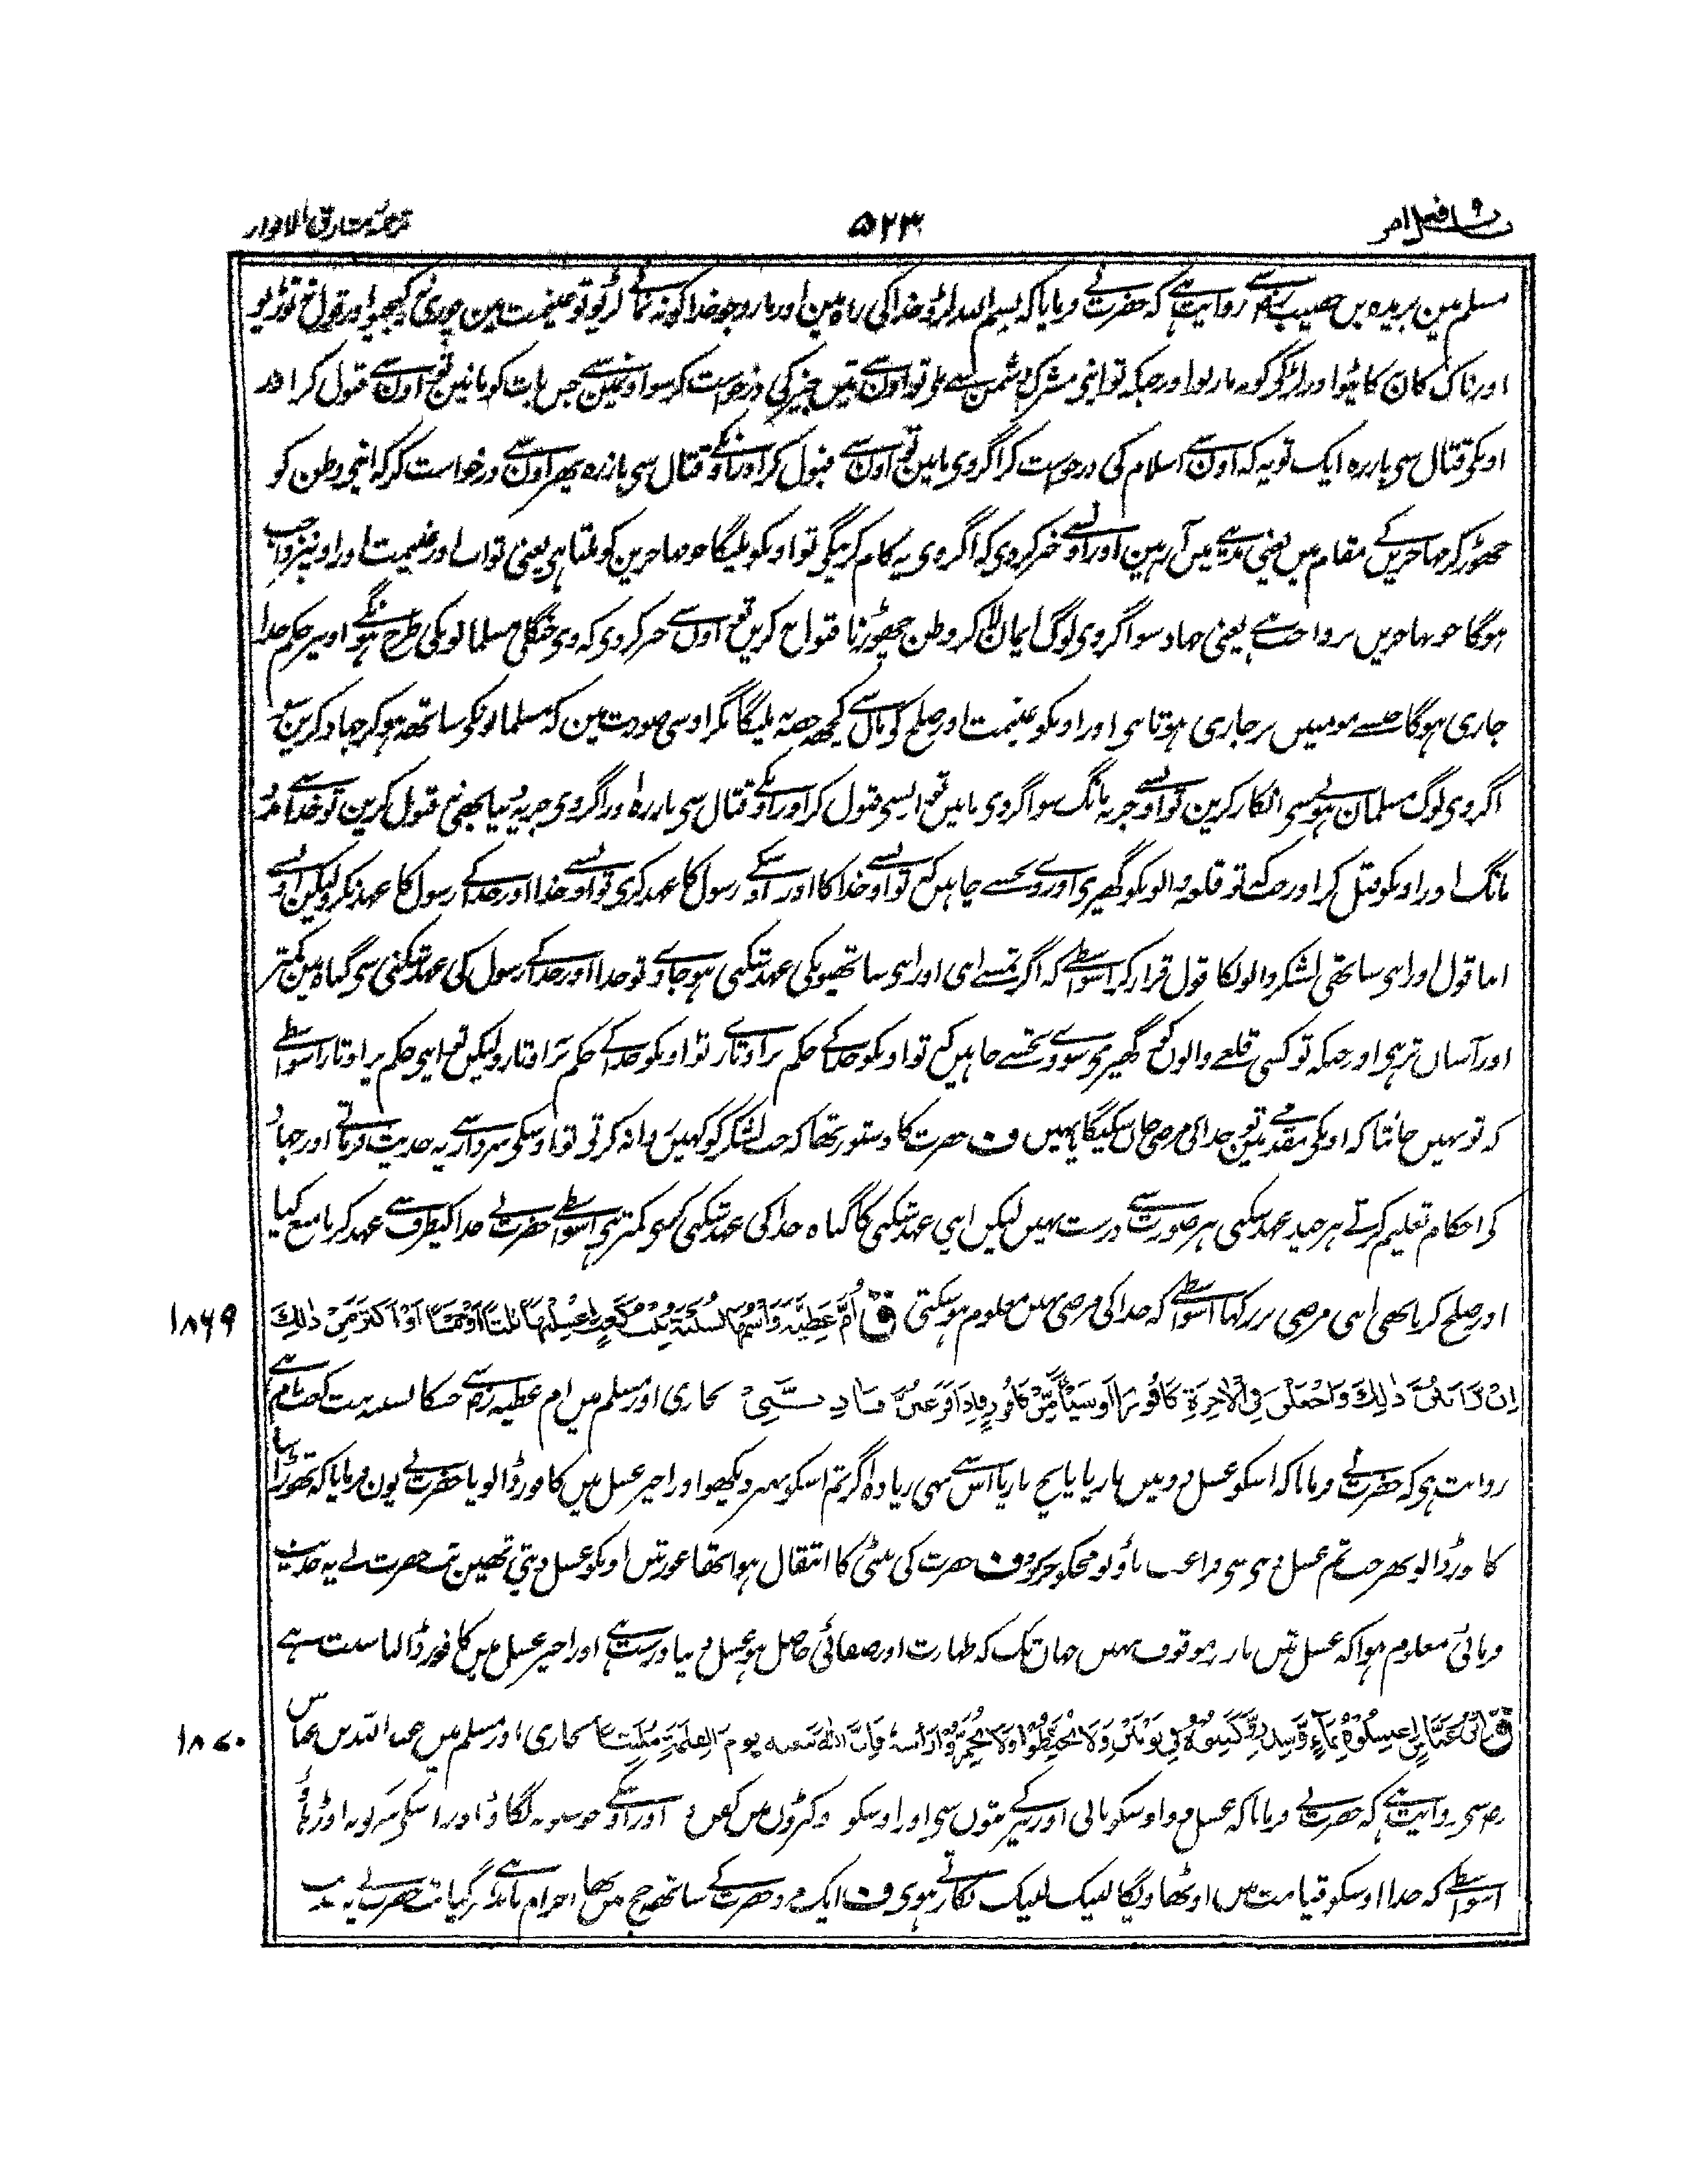 باب ۹ فصل امر
۵۲۳
ترجمۂ مشارق الانوار
مسلم مین بریدہ بن حصیب رضی سے روایت ہے کہ حضرت نے فرمایا کہ بسم اللہ لڑو خدا کی راہ مین اور مارو جو خدا کو نہ مانے لڑیو تو غنیمت مین چوری نکیجیو اور قول نہ توڑیو
اور ناک کان نہ کاٹیو اور لڑکے کو نہ ماریو اور جبکہ تو اپنے مشرک دشمن سے ملے تو اون سے تین چیز کی درخواست کر سو اونمین سے جس بات کو مانین تو اون سے قبول کر اور
اونکے قتال سی باز رہ ایک تو یہ کہ اون سے اسلام کی درخواست کر اگر وی مانین تو اون سے قبول کر اور اونکے قتال سی باز رہ پھر اون سے درخواست کر کہ اپنے وطن کو
چھوڑ کر مہاجرین کے مقام میں یعنی مدینے میں آ رہین اور اون سے خبر کر دی کہ اگر وی یہ کام کرینگے تو اونکو ملیگا جو مہاجرین کو ملتا ہی یعنی ثواب اور غنیمت اور اونپر واجب
ہوگا جو مہاجرین پر واجب ہے یعنی جہاد سو اگر وی لوگ ایمان لا کر وطن چھوڑنا قبول نہ کریں تو اون سے خبر کر دی کہ وی جنگلی مسلمانون کی طرح ہونگے اونپر حکم خدا
جاری ہوگا جیسے مومنیں پر جاری ہوتا ہی اور اونکو غنیمت اور صلح کے مال سے کچھ حصہ نہ ملیگا مگر اوسی صورت مین کہ مسلمانونکے ساتھ ہو کر جہاد کرین پھر
اگر وی لوگ مسلمان ہونے سی انکار کرین تو اون سے جزیہ مانگ سو اگر وی مانیں تو ایسے قبول کر اور اونکے قتال سی باز رہ اور اگر وی جزیہ دینا بھی نہ قبول کرین تو خدا سے مدد
مانگ اور اونکو قتل کر اور جبکہ تو قلعہ والونکو گھیری اور وے تجھسے چاہیں کہ تو اون سے خدا کا اور اوسکے رسول کا عہد کری تو اون سے خدا اور خدا کے رسول کا عہد نکر ولیکن اون سے
اپنا قول اور اپنے ساتھی لشکر والونکا قول قرار کر اسواسطے کہ اگر تمسے اپنی اور اپنے ساتھیونکی عہد شکنی ہو جاوے تو خدا اور خدا کے رسول کی عہد شکنی سی گناہ مین کمتر
اور آسان تر ہی اور جبکہ تو کسی قلعے والوں کو گھیری سو وے تجھسے چاہیں کہ تو اونکو خدا کے حکم پر اوتارے تو اونکو خدا کے حکم پر نہ اوتار ولیکن تو اپنے حکم پر اوتار اسواسطے
کہ تو نہیں جانتا کہ اونکے مقدمے میں تو خدا کی مرضی جان سکیگا یا نہیں ف حضرت کا دستور تھا کہ جب لشکر کو کہیں روانہ کرتے تو اوسکے سردار سے یہ حدیث فرماتے اور جہاد
کے احکام تعلیم کرتے ہر چند عہد شکنی ہر صورت سے درست نہیں لیکن اپنی عہد شکنی کا گناہ خدا کی عہد شکنی سی کمتر ہی اسواسطے حضرت نے خدا کیطرف سے عہد کرنا منع کیا
اور صلح کرنا بھی اپنی مرضی پر رکھا اسواسطے کہ خدا کی مرضی نہیں معلوم ہو سکتی ق اُمّ عَطِیَّہ وَاسْمُہَا نُسَیْبَۃُ بِنْتُ کَعْبٍ اِغْسِلْنَہَا ثَلٰثًا اَوْ خَمْسًا اَوْ اَکْثَرَ مِنْ ذٰلِکَ
۱۸۶۹
اِنْ رَاَیْتُنَّ ذٰلِکَ وَاجْعَلْنَ فِی الْاٰخِرَۃِ کَافُوْرًا اَوْ شَیْئًا مِّنْ کَافُوْرٍ فَاِذَا فَرَغْتُنَّ فَاٰذِنَّنِیْ بخاری اور مسلم میں ام عطیہ رضی سے جسکا نسیبہ بنت کعب نام ہے
روایت ہی کہ حضرت نے فرمایا کہ اسکو غسل دو تین بار یا پانچ بار یا اس سے بھی زیادہ اگر تم اسکو بہتر دیکھو اور اخیر غسل میں کافور ڈالو یا حضرت نے یون فرمایا کہ تھوڑا سا
کافور ڈالو پھر جب تم غسل دینے سی فراغت پاؤ تو مجکو خبر کرو ف حضرت کی بیٹی کا انتقال ہوا تھا عورتیں اونکو غسل دیتی تھین تب حضرت نے یہ حدیث
فرمائی معلوم ہوا کہ غسل تین بار پر موقوف نہیں جہاں تک کہ طہارت اور صفائی حاصل ہو غسل دینا درست ہے اور اخیر غسل میں کافور ڈالنا سنت ہے
ق اِبْنُ عَبَّاسٍ اِغْسِلُوْہُ بِمَآءٍ وَّسِدْرٍ وَّکَفِّنُوْہُ فِیْ ثَوْبَیْنِ وَلَا تُحَنِّطُوْہُ وَلَا تُخَمِّرُوْا رَاْسَہٗ فَاِنَّ اللّٰہَ یَبْعَثُہٗ یَوْمَ الْقِیٰمَۃِ مُلَبِّیًا بخاری اور مسلم میں عبد اللہ بن عباس
۱۸۷۰
رض سی روایت ہے کہ حضرت نے فرمایا کہ غسل دو اوسکو پانی اور بیر کے پتوں سی اور اوسکو دو کپڑوں میں کفن دو اور اوسکے خوشبو نہ لگاؤ اور اسکے سر کو نہ اوڑھاؤ
اسواسطے کہ خدا اوسکو قیامت میں اوٹھاویگا لبیک لبیک پکارتے ہوی ف ایک مرد حضرت کے ساتھ حج میں تھا احرام باندھے گر گیا تب حضرت نے یہ حدیث